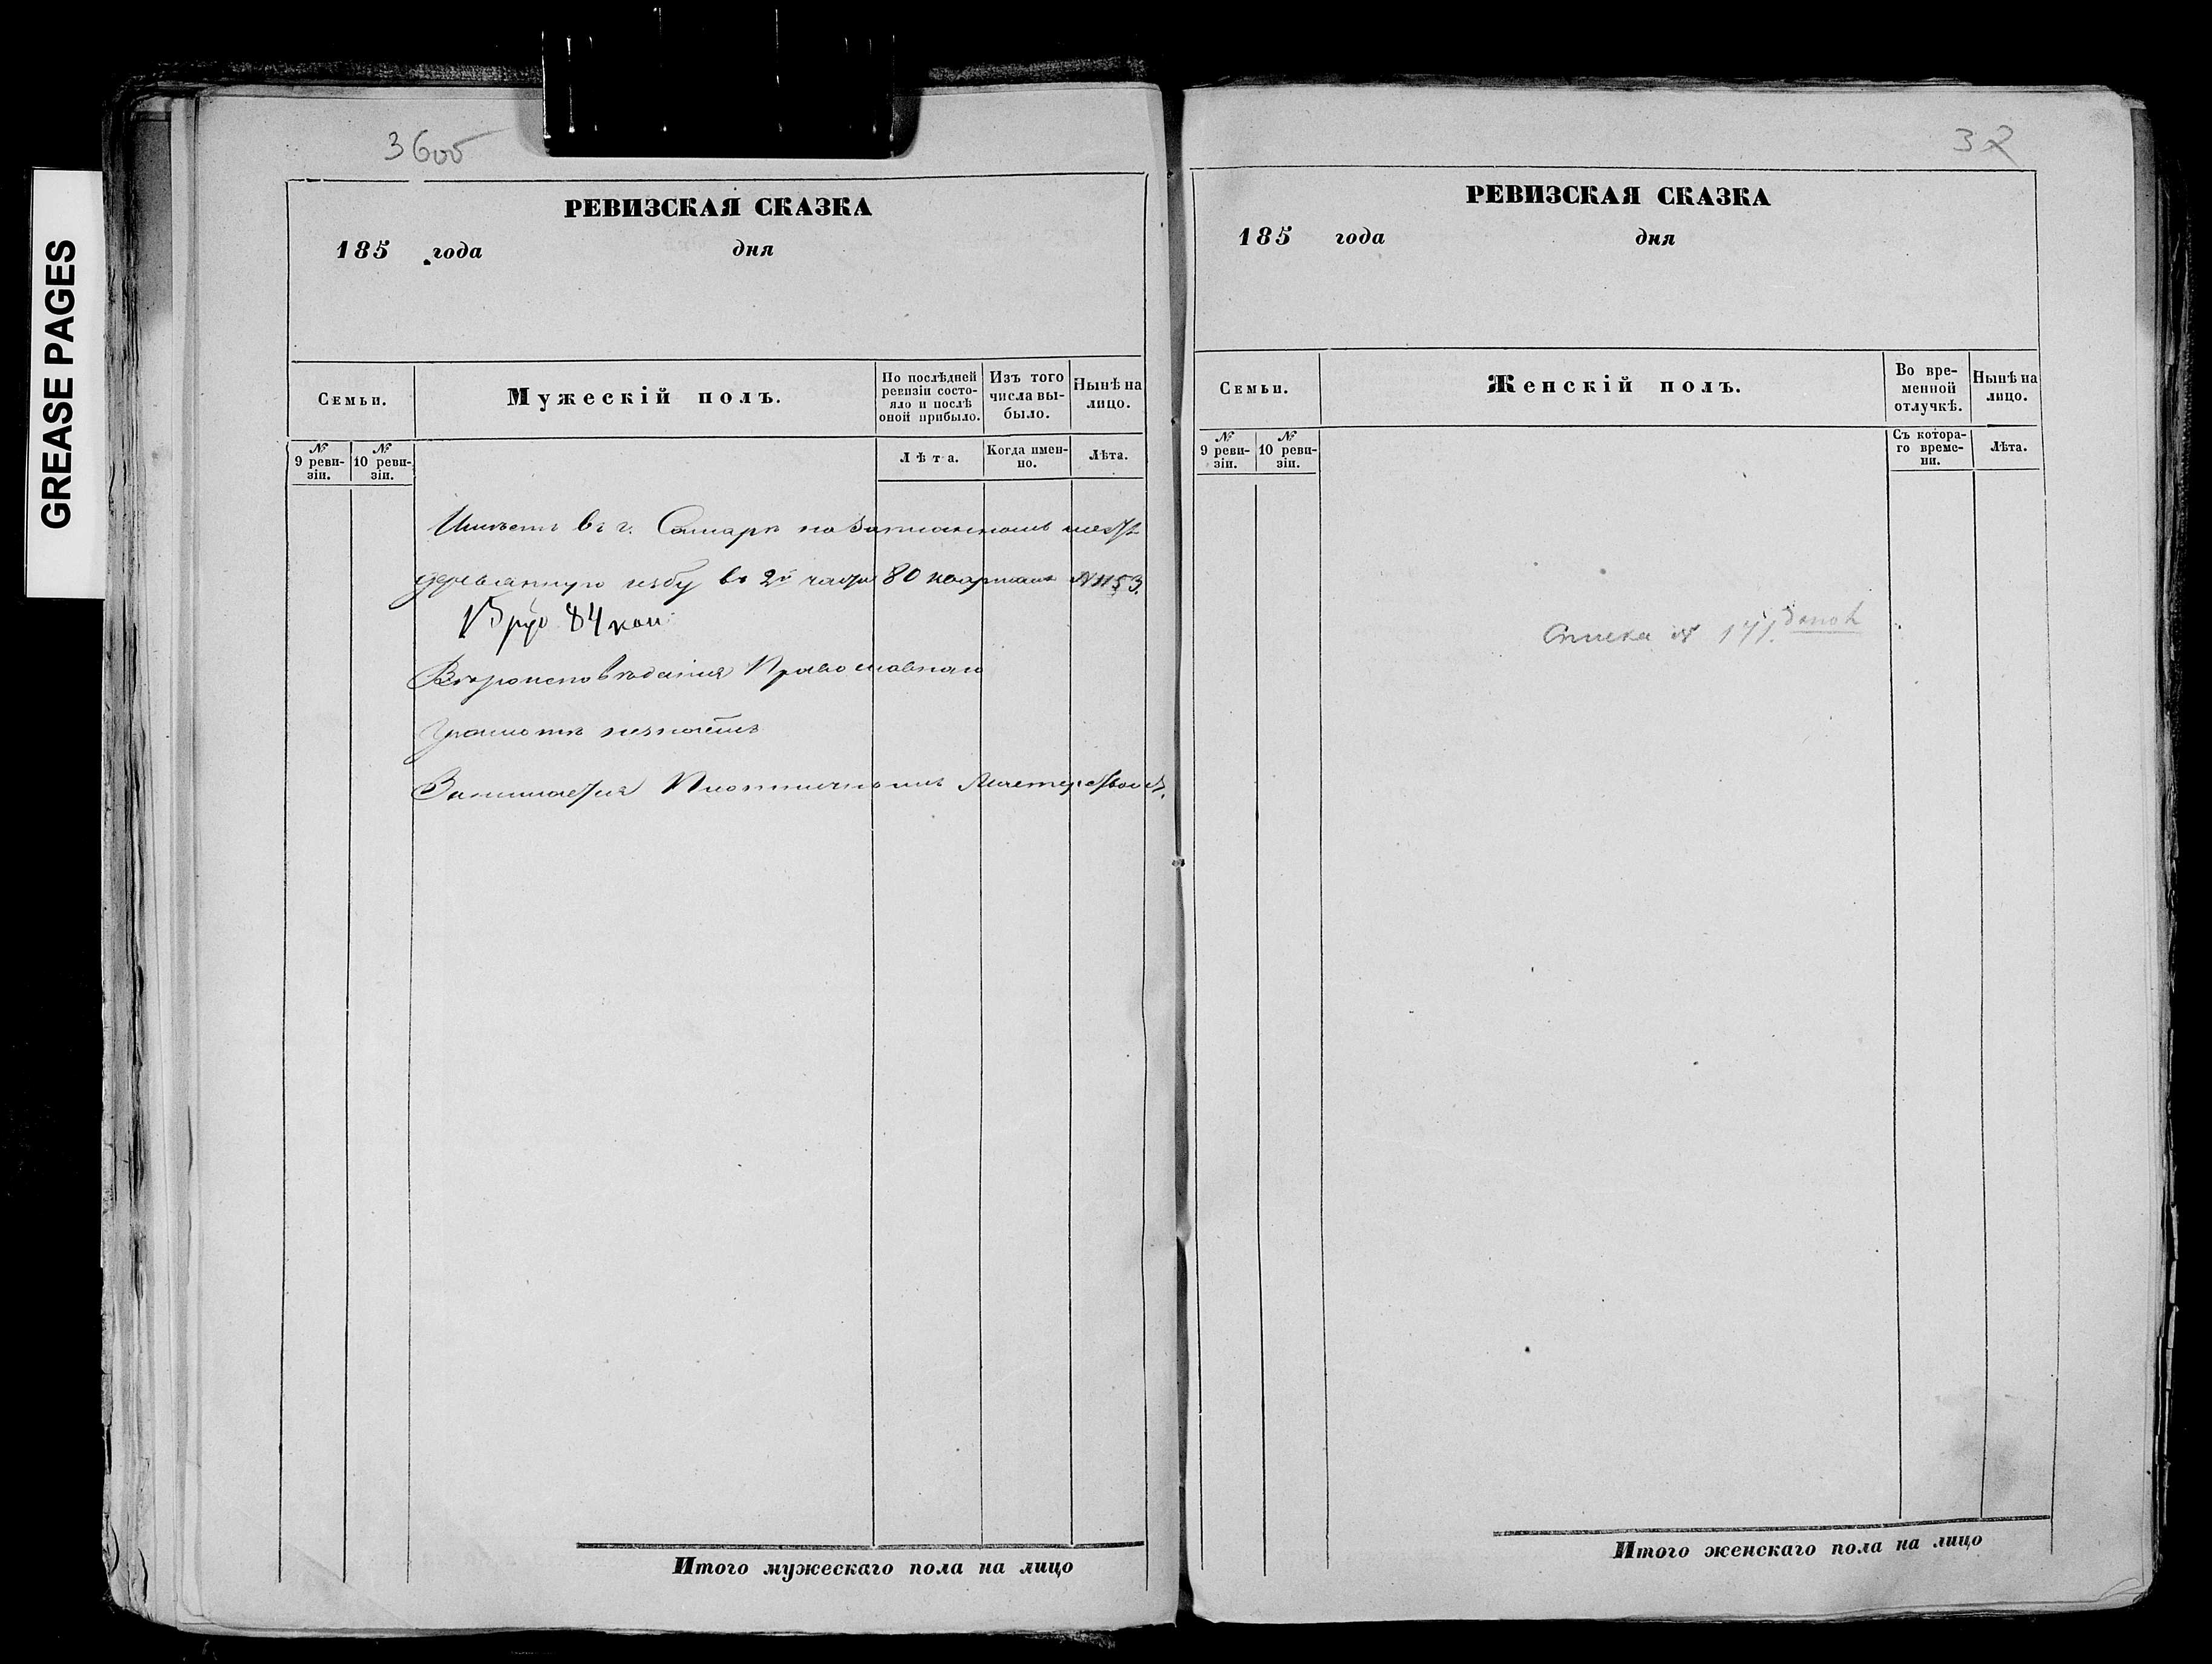 GREASE PAGES
36об
РЕВИЗСКАЯ СКАЗКА
185 года дня
Семьи.
Мужескій полъ.
По послѣдней ревизіи состояло и послѣ оной прибыло.
Изъ того числа выбыло.
Нынѣ на лицо.
№ 9 ревизіи.
№ 10 ревизіи.
Лѣта.
Когда именно.
Лѣта.
Имѣетъ въ г. Самарѣ на
деревянную избу во 2й части 80 квартала №1153.
15 руб 84 коп
Вѣроисповѣданія Православнаго
Грамотѣ незнаетъ
Занимается Плотничнымъ Мастерствомъ.
Итого мужескаго пола на лицо
32
РЕВИЗСКАЯ СКАЗКА
185 года дня
Семьи.
Женскій полъ.
Во временной отлучкѣ.
Нынѣ на лицо.
№ 9 ревизіи.
№ 10 ревизіи.
Съ котораго времени.
Лѣта.
Списка №
Итого женскаго пола на лицо